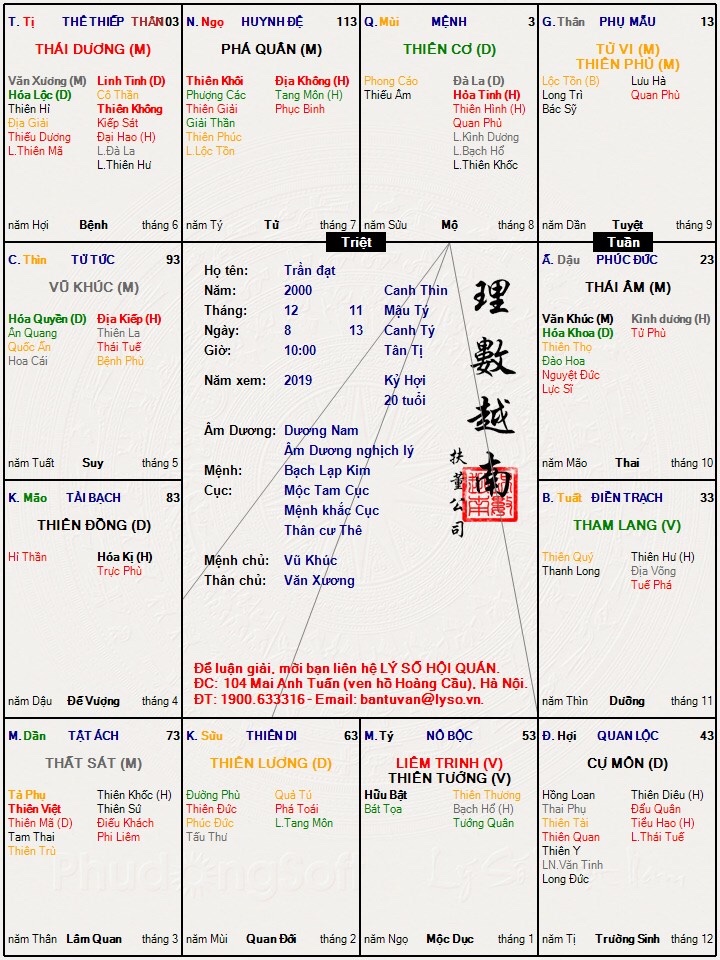 T. Tị THÊ THIẾP THÂN 103
THÁI DƯƠNG (M)
Văn Xương (M) Linh Tinh (D)
Hóa Lộc (D) Cô Thần
Thiên Hỉ Thiên Không
Địa Giải Kiếp Sát
Thiếu Dương Đại Hao (H)
L.Thiên Mã L.Đà La
L.Thiên Hư
năm Hợi Bệnh tháng 6
N. Ngọ HUYNH ĐỆ 113
PHÁ QUÂN (M)
Thiên Khôi Địa Không (H)
Phượng Các Tang Môn (H)
Thiên Giải Phục Binh
Giải Thần
Thiên Phúc
L.Lộc Tồn
năm Tý Tử tháng 7
Q. Mùi MỆNH 3
THIÊN CƠ (D)
Phong Cáo Đà La (D)
Thiếu Âm Hỏa Tinh (H)
Thiên Hình (H)
Quan Phù
L.Kình Dương
L.Bạch Hổ
L.Thiên Khốc
năm Sửu Mộ tháng 8
G. Thân PHỤ MẪU 13
TỬ VI (M)
THIÊN PHỦ (M)
Lộc Tồn (B) Lưu Hà
Long Trì Quan Phủ
Bác Sỹ
năm Dần Tuyệt tháng 9
Triệt
Tuần
C. Thìn TỬ TỨC 93
VŨ KHÚC (M)
Hóa Quyền (D) Địa Kiếp (H)
Ân Quang Thiên La
Quốc Ấn Thái Tuế
Hoa Cái Bệnh Phù
năm Tuất Suy tháng 5
Họ tên: Trần đạt
Năm: 2000 Canh Thìn
Tháng: 12 11 Mậu Tý
Ngày: 8 13 Canh Tý
Giờ: 10:00 Tân Tị
Năm xem: 2019 Kỷ Hợi
20 tuổi
Âm Dương: Dương Nam
Âm Dương nghịch lý
Mệnh: Bạch Lạp Kim
Cục: Mộc Tam Cục
Mệnh khắc Cục
Thân cư Thê
Mệnh chủ: Vũ Khúc
Thân chủ: Văn Xương
理數越南
扶董公司
Để luận giải, mời bạn liên hệ LÝ SỐ HỘI QUÁN.
ĐC: 104 Mai Anh Tuấn (ven hồ Hoàng Cầu), Hà Nội.
ĐT: 1900.633316 - Email: bantuvan@lyso.vn.
Ấ. Dậu PHÚC ĐỨC 23
THÁI ÂM (M)
Văn Khúc (M) Kình dương (H)
Hóa Khoa (D) Tử Phù
Thiên Thọ
Đào Hoa
Nguyệt Đức
Lực Sĩ
năm Mão Thai tháng 10
K. Mão TÀI BẠCH 83
THIÊN ĐỒNG (D)
Hỉ Thần Hóa Kị (H)
Trực Phù
năm Dậu Đế Vượng tháng 4
B. Tuất ĐIỀN TRẠCH 33
THAM LANG (V)
Thiên Quý Thiên Hư (H)
Thanh Long Địa Võng
Tuế Phá
năm Thìn Dưỡng tháng 11
M. Dần TẬT ÁCH 73
THẤT SÁT (M)
Tả Phụ Thiên Khốc (H)
Thiên Việt Thiên Sứ
Thiên Mã (D) Điếu Khách
Tam Thai Phi Liêm
Thiên Trù
năm Thân Lâm Quan tháng 3
K. Sửu THIÊN DI 63
THIÊN LƯƠNG (D)
Đường Phù Quả Tú
Thiên Đức Phá Toái
Phúc Đức L.Tang Môn
Tấu Thư
năm Mùi Quan Đới tháng 2
M. Tý NÔ BỘC 53
LIÊM TRINH (V)
THIÊN TƯỚNG (V)
Hữu Bật Thiên Thương
Bát Tọa Bạch Hổ (H)
Tướng Quân
năm Ngọ Mộc Dục tháng 1
Đ. Hợi QUAN LỘC 43
CỰ MÔN (D)
Hồng Loan Thiên Diêu (H)
Thai Phụ Đẩu Quân
Thiên Tài Tiểu Hao (H)
Thiên Quan L.Thái Tuế
Thiên Y
LN.Văn Tinh
Long Đức
năm Tị Trường Sinh tháng 12